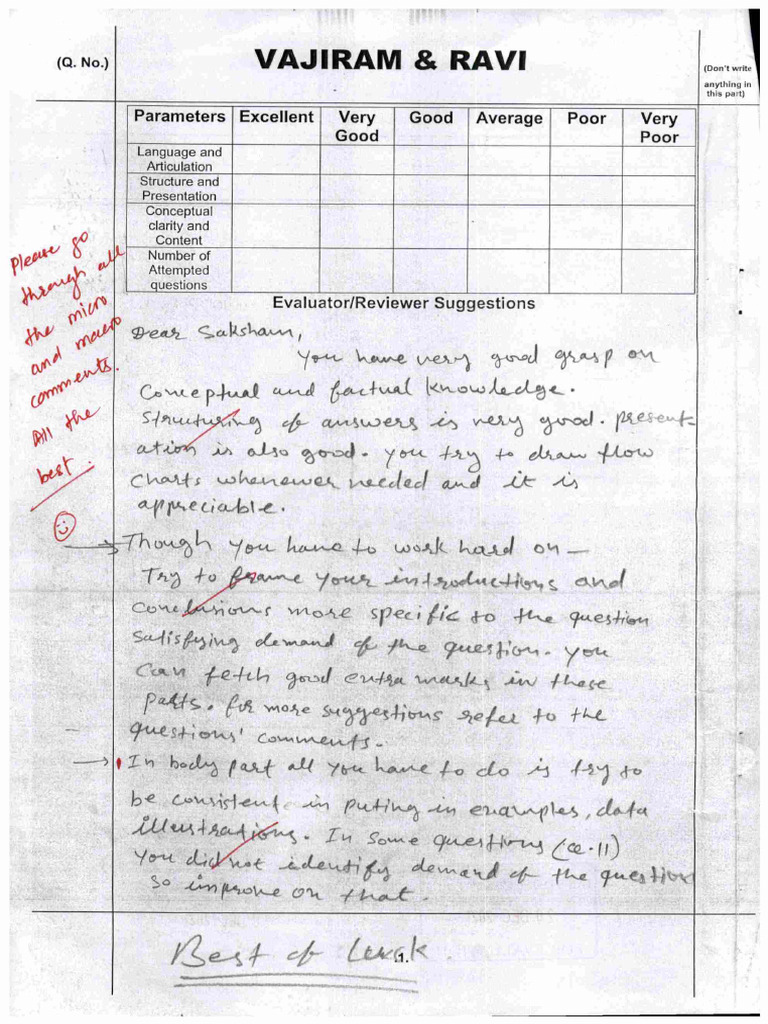 (Q. No.)
VAJIRAM & RAVI
(Don't write
anything in
this part)
Parameters Excellent Very Good Good Average Poor Very Poor
Language and
Articulation
Structure and
Presentation
Conceptual
clarity and
Content
Number of
Attempted
questions
Evaluator/Reviewer Suggestions
Please go
through all
the micro
and macro
comments.
All the
best.
Dear Saksham,
You have very good grasp on
Conceptual and factual knowledge.
Structuring of answers is very good. present-
ation is also good. You try to draw flow
charts whenever needed and it is
appreciable.
Though you have to work hard on—
Try to frame your introductions and
conclusions more specific to the question
satisfying demand of the question. You
can fetch good extra marks in these
parts. for more suggestions refer to the
questions' comments.
In body part all you have to do is try to
be consistent in puting in examples, data
illustrations. In some questions (Q.11)
you did not identify demand of the question
so improve on that.
Best of Luck
1.